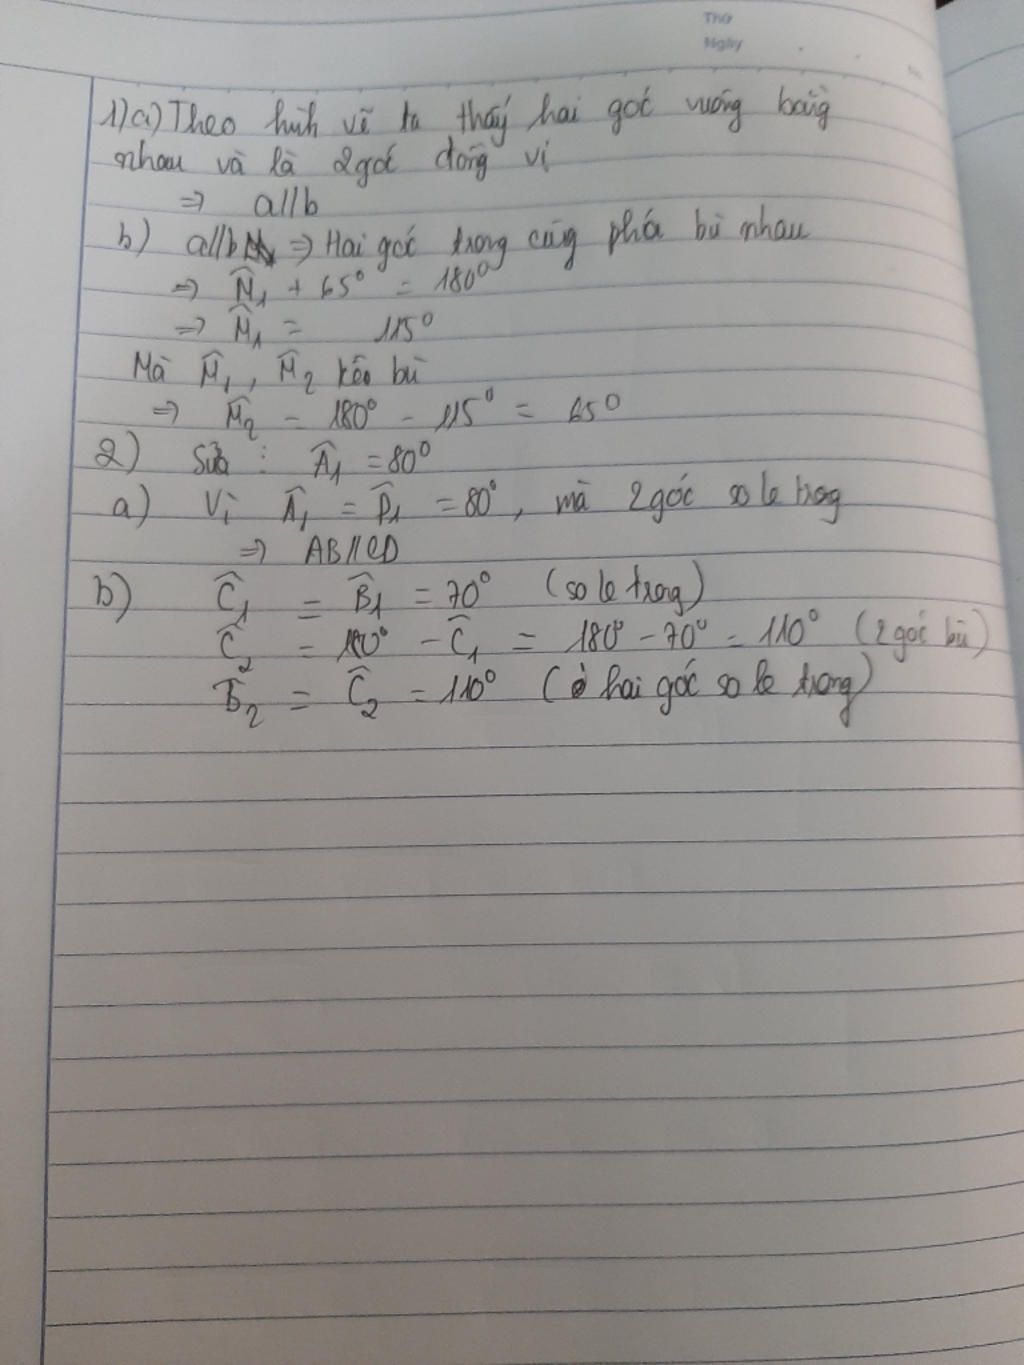 Thứ
Ngày
1) a) Theo hình vẽ ta thấy hai góc vuông bằng
nhau và là 2 góc đồng vị
⇒ a//b
b) a//b ⇒ Hai góc trong cùng phía bù nhau
⇒ M̂₁ + 65° = 180°
⇒ M̂₁ = 115°
Mà M̂₁, M̂₂ kề bù
⇒ M̂₂ = 180° - 115° = 65°
2) Sửa : Â₁ = 80°
a) Vì Â₁ = D̂₁ = 80°, mà 2 góc so le trong
⇒ AB//CD
b) Ĉ₁ = B̂₁ = 70° (so le trong)
Ĉ₂ = 180° - Ĉ₁ = 180° - 70° = 110° (2 góc bù)
B̂₂ = Ĉ₂ = 110° (ở hai góc so le trong)